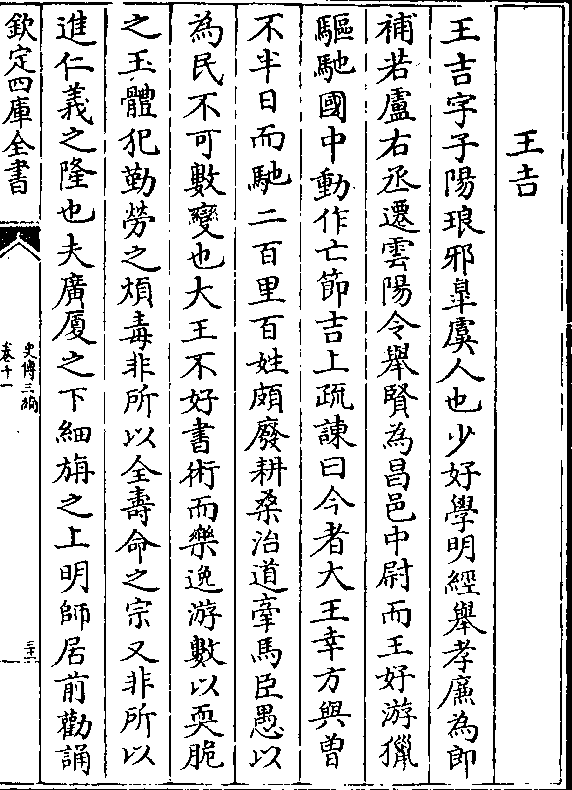 王吉
王吉字子陽琅邪臯虞人也少好學明經舉孝廉為郎
補若盧右丞遷雲陽令舉賢為昌邑中尉而王好游獵
驅馳國中動作亡節吉上疏諫曰今者大王幸方與曾
不半日而馳二百里百姓頗廢耕桑治道牽馬臣愚以
為民不可數變也大王不好書術而樂逸游數以耎脆
之玉體犯勤勞之煩毒非所以全壽命之宗又非所以
進仁義之隆也夫廣厦之下細旃之上明師居前勸誦
欽定四庫全書
史傳三編
卷十一
三十一